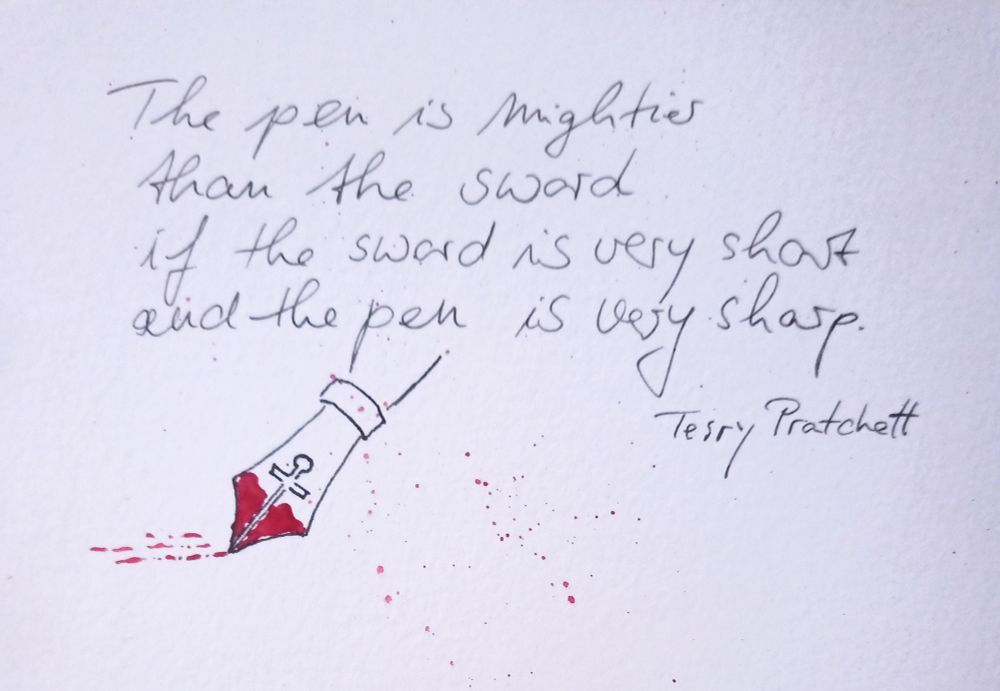 The pen is mightier
than the sword
if the sword is very short
and the pen is very sharp.
Terry Pratchett